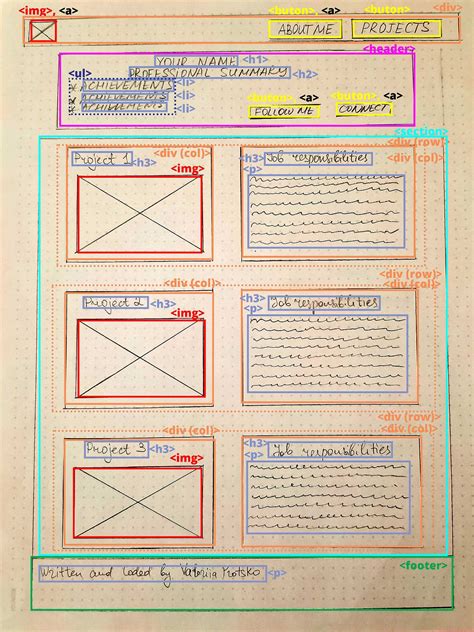 <img>, <a> <buton>, <a> <buton> <a> <div>
ABOUT ME PROJECTS
<header>
YOUR NAME <h1>
<ul> PROFESSIONAL SUMMARY <h2>
ACHIEVEMENTS <li>
ACHIEVEMENTS <li>
ACHIEVEMENTS <li>
<buton> <a> <buton> <a>
FOLLOW ME CONNECT
<section>
<div (row)>
Project 1 <h3> <div (col)> Job responsibilities <div (col)>
<img> <h3>
<p>
<div (row)>
<div (col)> <div (col)>
Project 2 <h3> <h3> Job responsibilities
<img> <p>
<div (row)>
<div (col)> <div (col)>
Project 3 <h3> <h3> Job responsibilities
<img> <p>
<footer>
Written and Coded by Valeriia Motsko <p>